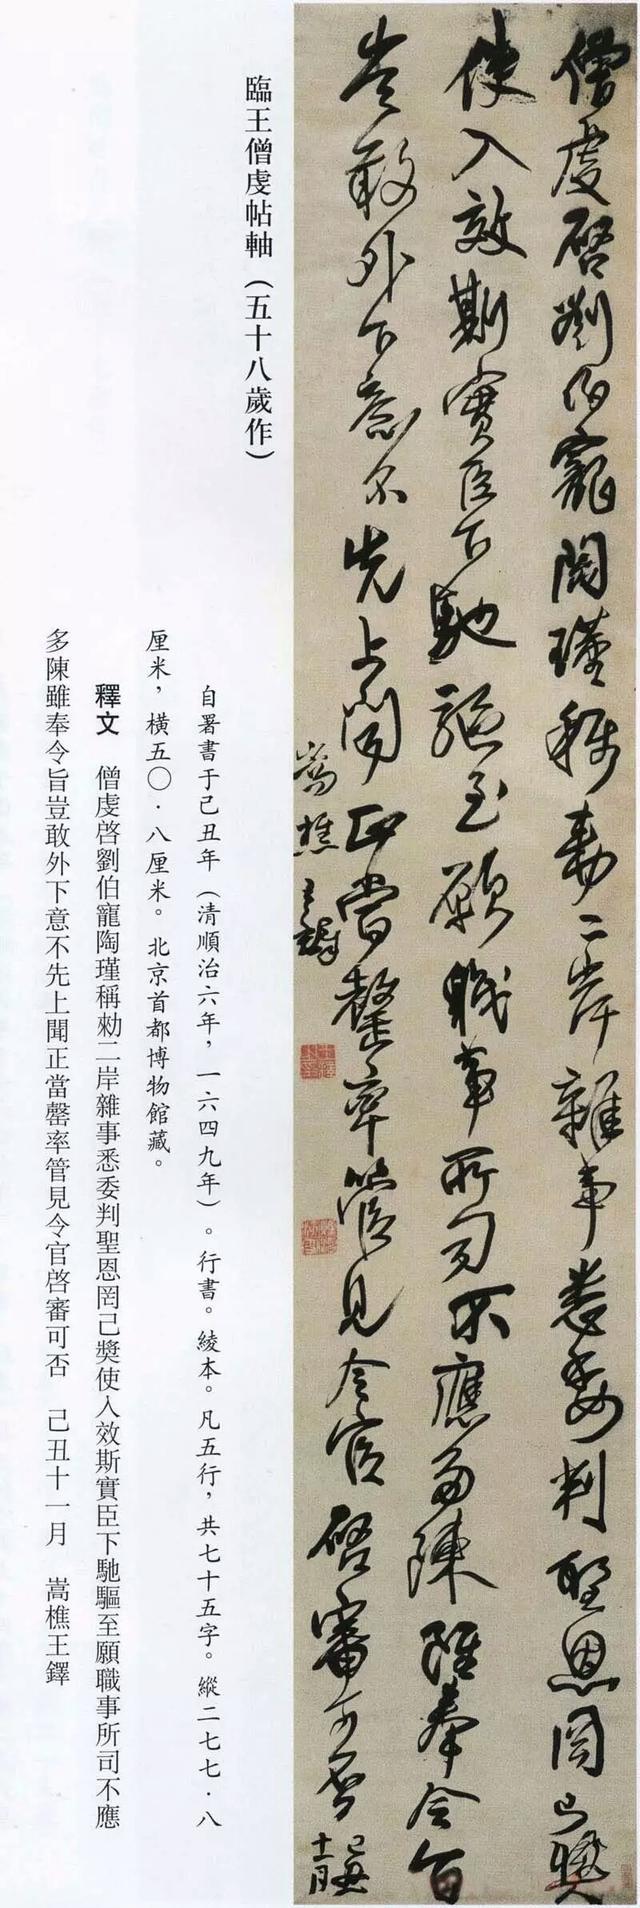 僧虔啓劉伯寵陶瑾稱勑二岸雜事悉委判聖恩罔己獎
使入效斯實臣下馳驅至願職事所司不應多陳雖奉令旨
豈敢外下意不先上聞正當罄率管見令官啓審可否己丑十一月
嵩樵王鐸
臨王僧虔帖軸(五十八歲作)
自署書于己丑年(清順治六年,一六四九年)。行書。綾本。凡五行,共七十五字。縱二七七·八
厘米,橫五〇·八厘米。北京首都博物館藏。
釋文 僧虔啓劉伯寵陶瑾稱勑二岸雜事悉委判聖恩罔己獎使入效斯實臣下馳驅至願職事所司不應
多陳雖奉令旨豈敢外下意不先上聞正當罄率管見令官啓審可否 己丑十一月 嵩樵王鐸